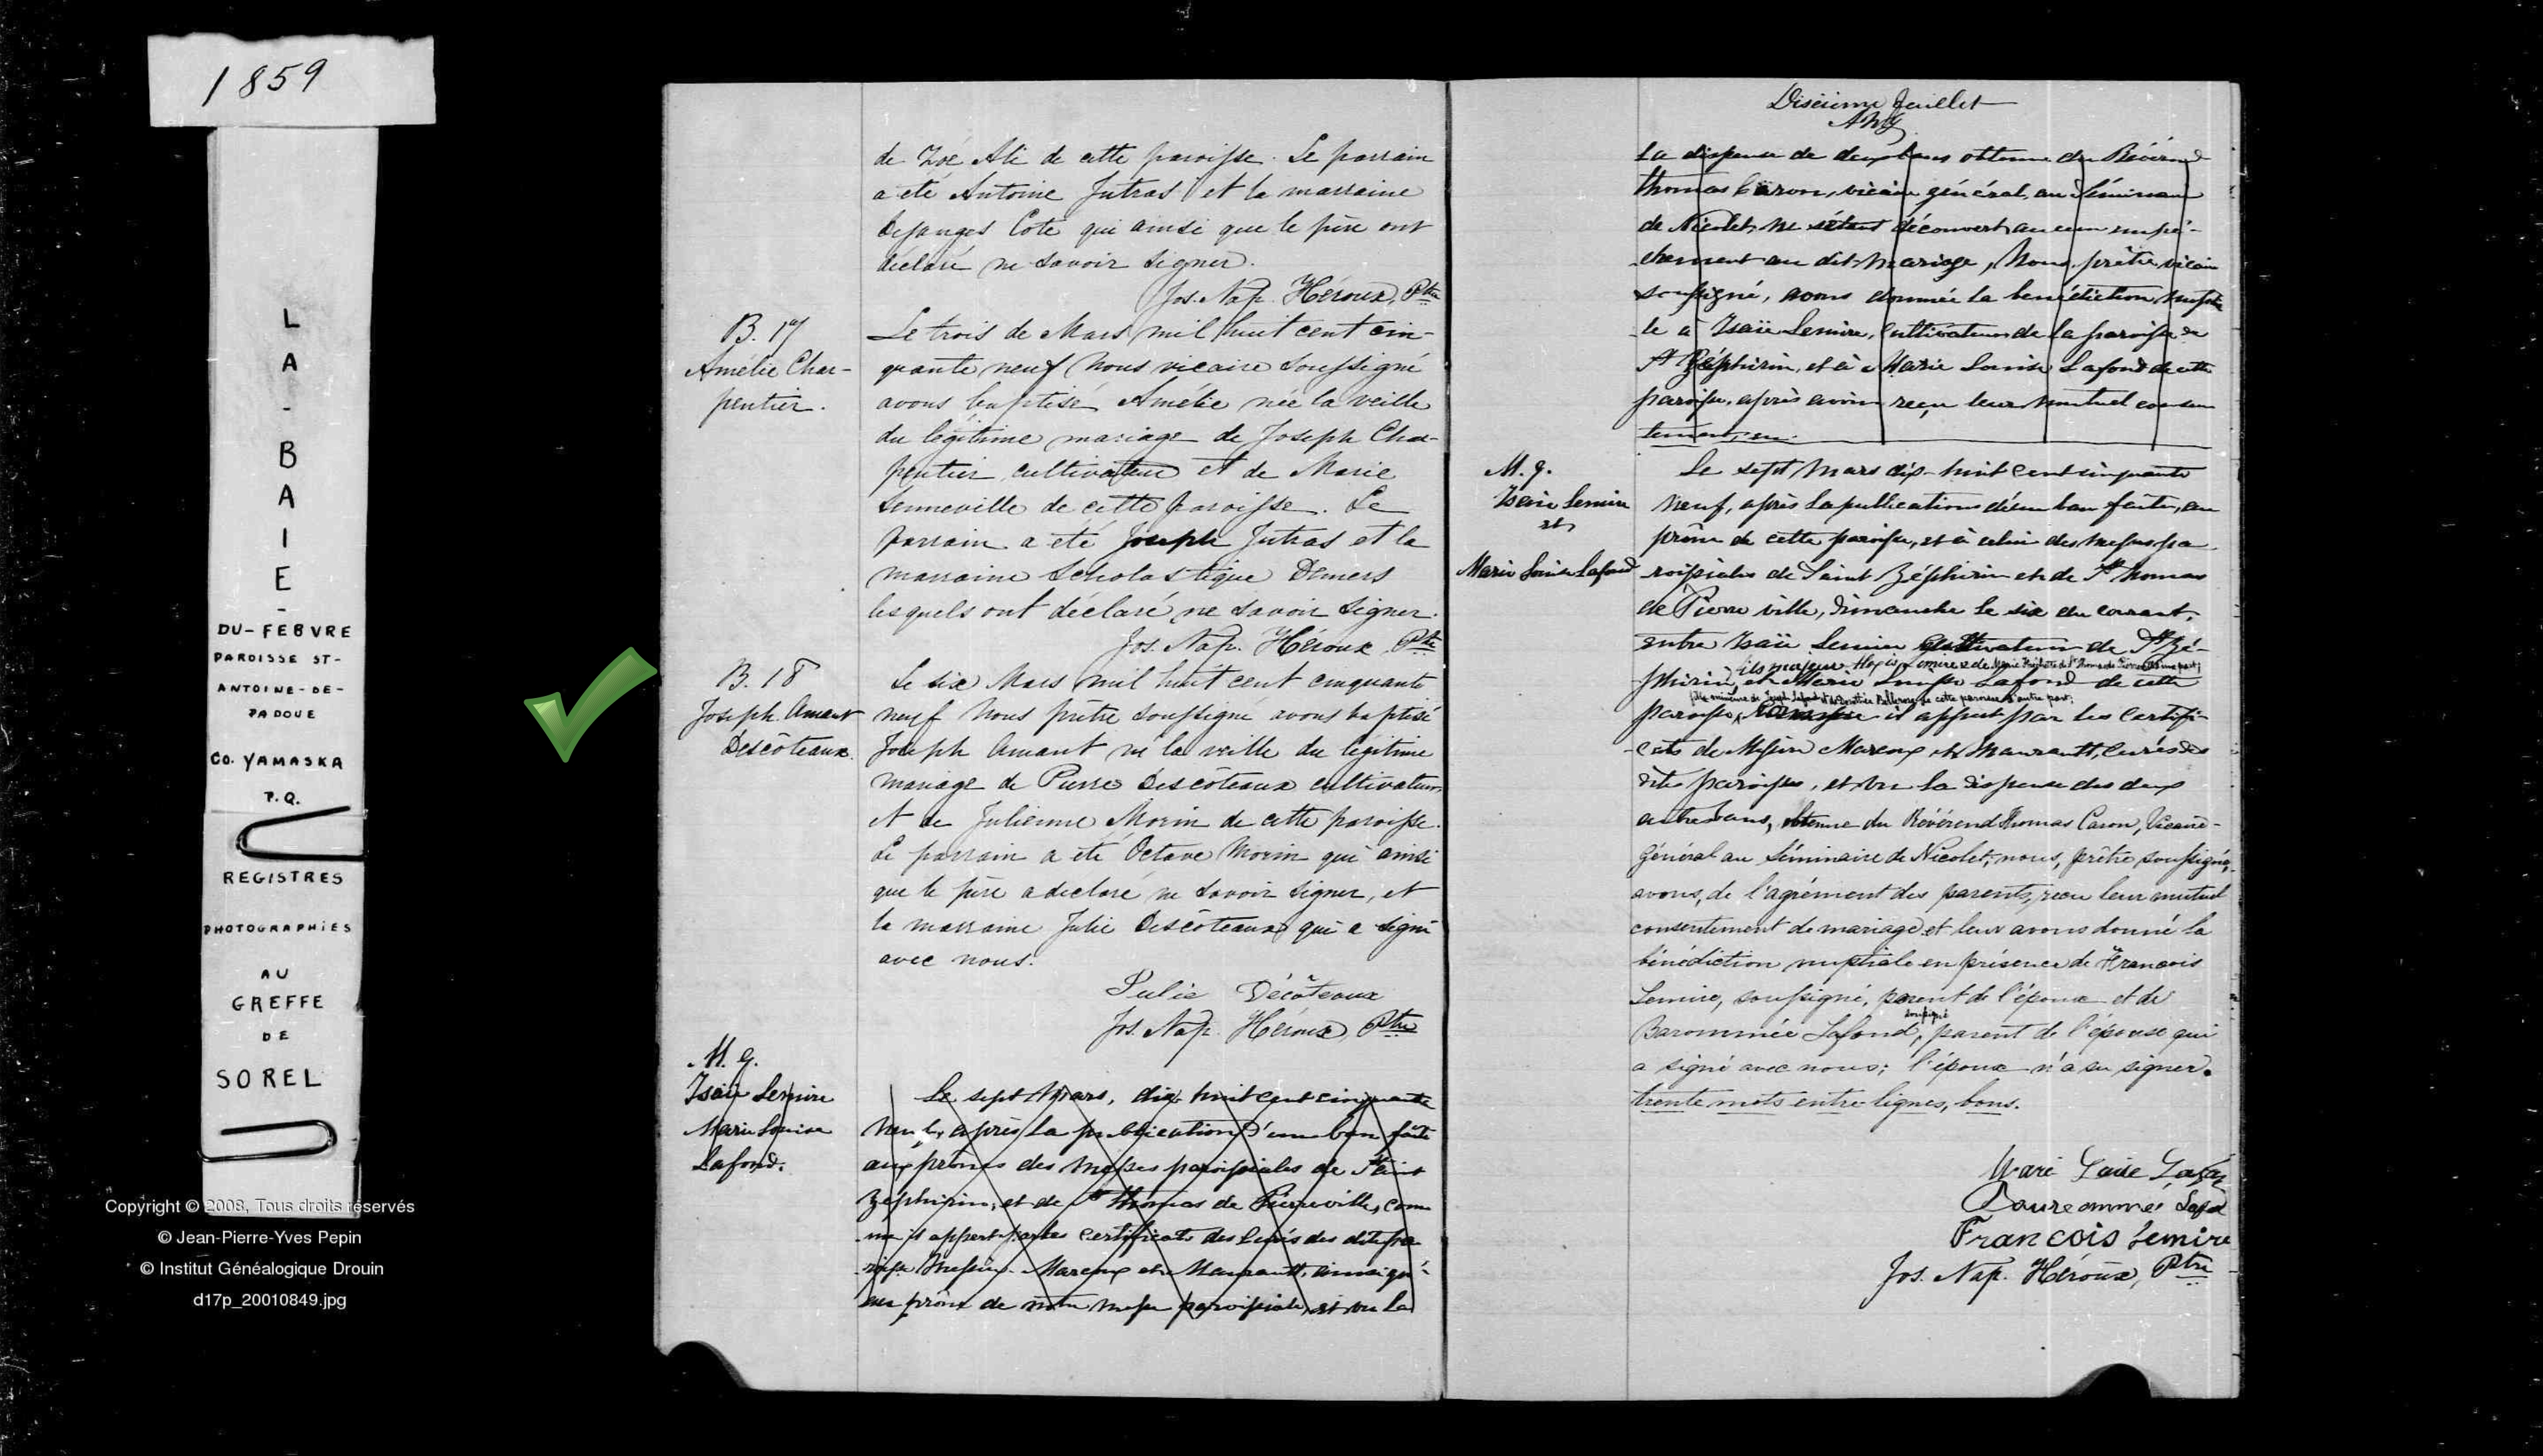 1859
L
A
-
B
A
I
E
-
DU-FEBVRE
PAROISSE ST-
ANTOINE-DE-
PADOUE
CO. YAMASKA
P.Q.
REGISTRES
PHOTOGRAPHIES
AU
GREFFE
DE
SOREL
Copyright © 2008, Tous droits réservés
© Jean-Pierre-Yves Pepin
© Institut Généalogique Drouin
d17p_20010849.jpg
de Zoé Alie de cette paroisse. Le parrain
a été Antoine Jutras et la marraine
Desanges Coté qui ainsi que le père ont
déclaré ne savoir signer.
Jos. Nap. Héroux, Ptre
B. 17
Amélie Char-
pentier.
Le trois de Mars mil huit cent cin-
quante neuf Nous vicaire soussigné
avons baptisé Amélie née la veille
du légitime mariage de Joseph Char-
pentier cultivateur et de Marie
Senneville de cette paroisse. Le
parrain a été Joseph Jutras et la
marraine Scholastique Demers
lesquels ont déclaré ne savoir signer.
Jos. Nap. Héroux, Ptre
B. 18
Joseph Amant
Descôteaux.
Le six Mars mil huit cent cinquante
neuf Nous prêtre soussigné avons baptisé
Joseph Amant né la veille du légitime
mariage de Pierre Descôteaux cultivateur
et de Julienne Morin de cette paroisse.
Le parrain a été Octave Morin qui ainsi
que le père a déclaré ne savoir signer, et
la marraine Julie Descôteaux qui a signé
avec nous.
Julie Décôteaux
Jos. Nap. Héroux, Ptre
M. 9.
Isaïe Lemire
Marie Louise
Lafond.
Le sept Mars, dix huit cent cinquante
neuf, après la publication d'un ban faite
aux prônes des messes paroissiales de Saint
Zéphirin, et de St Thomas de Pierreville, com
me il appert par les certificats des Curés des dites pa
roisses Messires Marcoux et Maurault, ainsi qu'
au prône de notre messe paroissiale, et vu la
Dixième Juillet
la dispense de deux bans obtenue du Révérend
Thomas Caron, vicaire général, au Séminaire
de Nicolet, ne s'étant découvert aucun empê-
chement au dit mariage, Nous, prêtre, vicaire
soussigné, avons donnée la bénédiction nuptia
le à Isaïe Lemire, cultivateur de la paroisse de
St Zéphirin, et à Marie Louise Lafond de cette
paroisse, après avoir reçu leur mutuel consen
tement, en
M. 9.
Isaïe Lemire
et
Marie Louise Lafond
Le sept Mars dix-huit cent cinquante
neuf, après la publication d'un ban faite, au
prône de cette paroisse, et à celui des messes pa
roissiales de Saint Zéphirin et de St Thomas
de Pierreville, dimanche le six du courant,
entre Isaïe Lemire cultivateur de St Zé-
fils majeur d'Alexis Lemire & de Marie
phirin, et Marie Louise Lafond de cette
fille mineure de Joseph Lafond et de Bellerose de cette paroisse d'autre part;
paroisse, il appert par les certifi-
cats de Messire Marcoux et Maurault, curés des
dites paroisses, et vu la dispense des deux
autres bans, obtenue du Révérend Thomas Caron, Vicaire-
Général au Séminaire de Nicolet, nous, prêtre soussigné,
avons, de l'agrément des parents, reçu leur mutuel
consentement de mariage et leur avons donné la
bénédiction nuptiale en présence de François
Lemire, soussigné, parent de l'époux et de
soussigné
Barommée Lafond, parent de l'épouse qui
a signé avec nous; l'époux n'a su signer.
trente mots entre lignes, bons.
Marie Louise Lafon
Baurommé Lafod
Francois Lemire
Jos. Nap. Héroux, Ptre